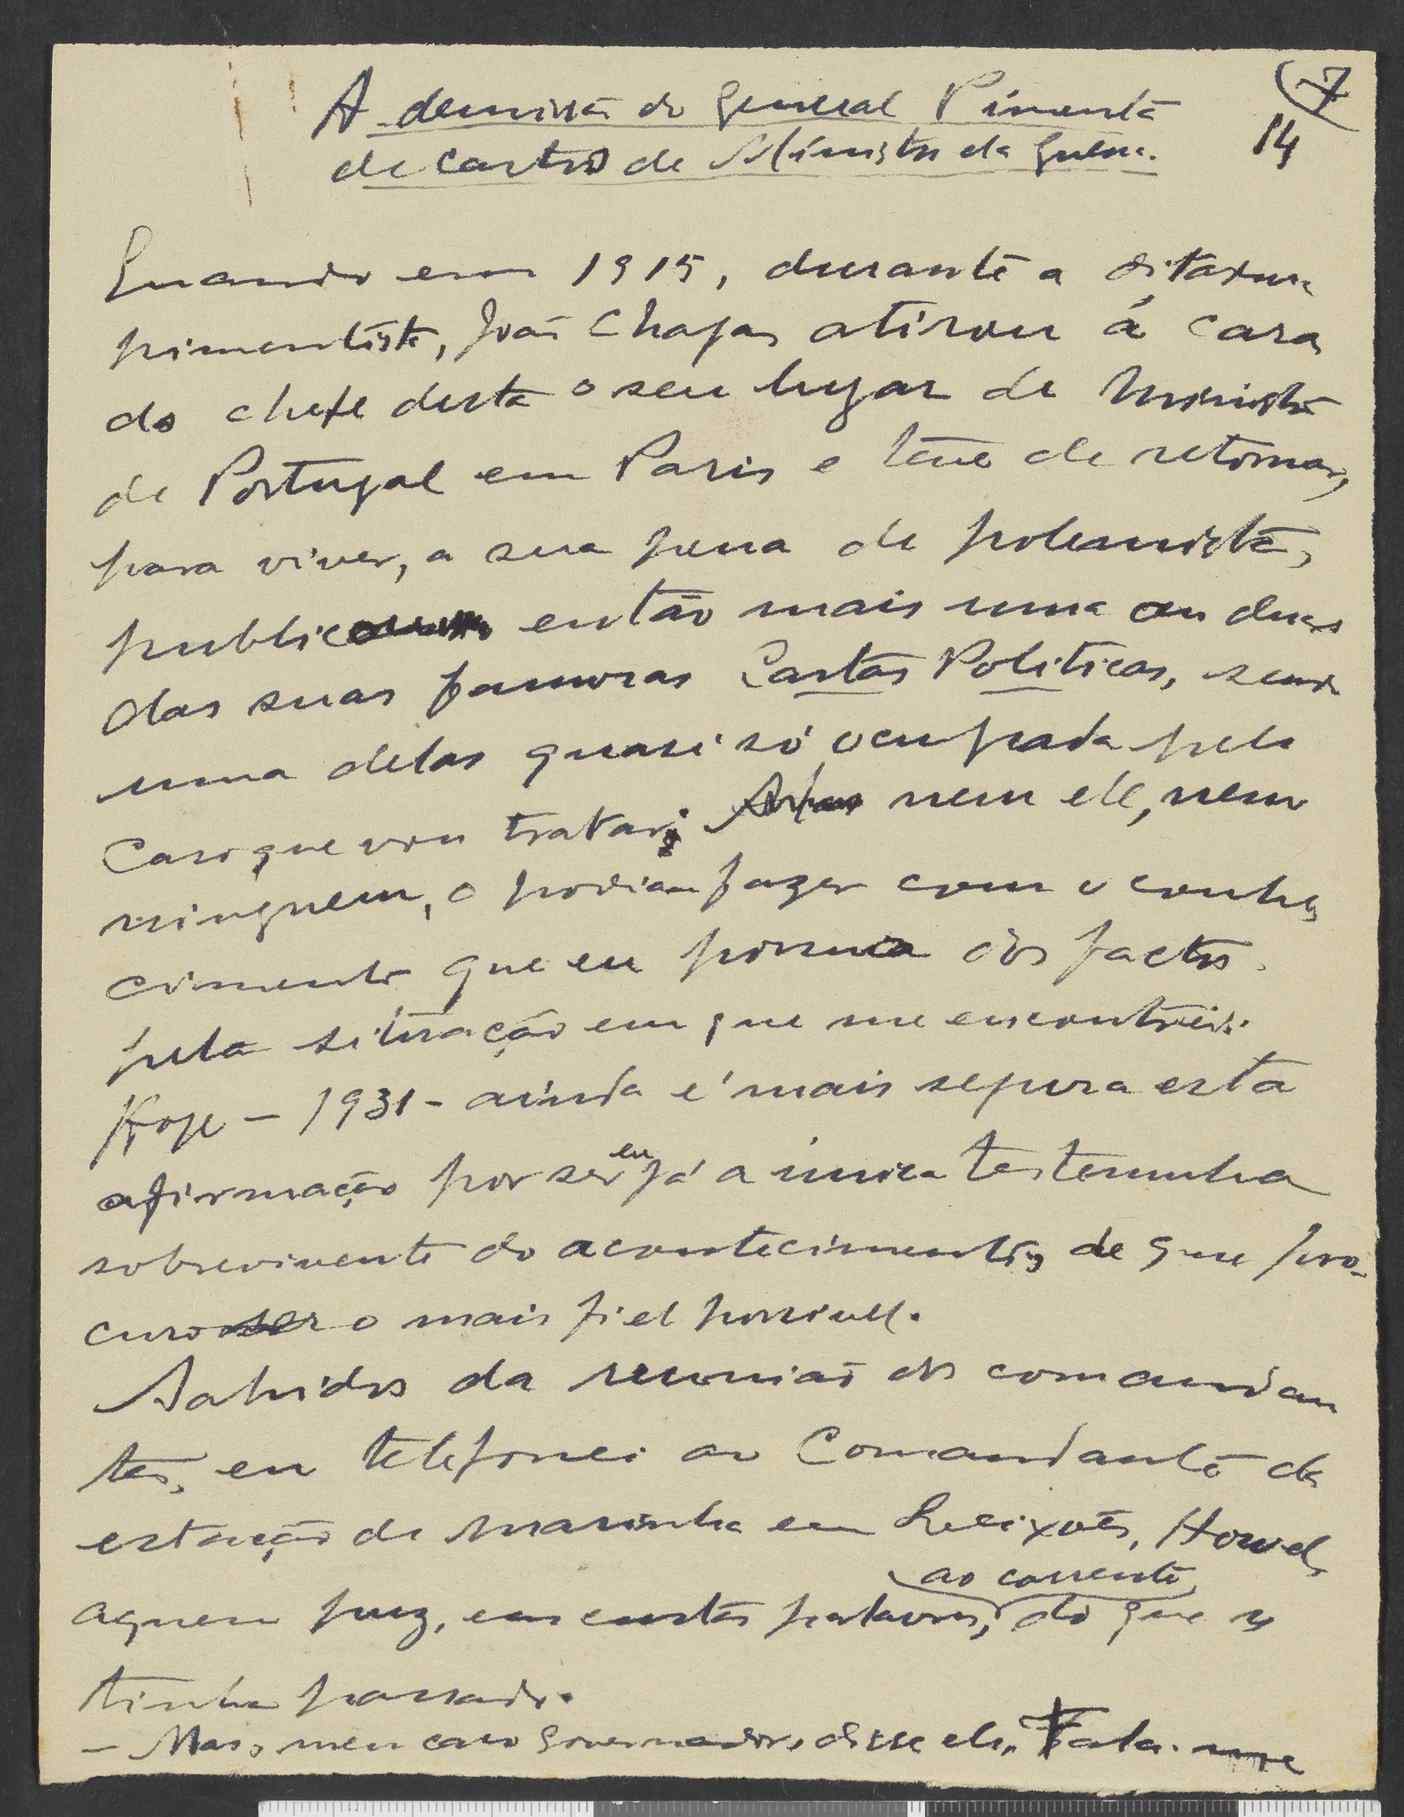 7
14
A demissão do General Pimenta
de Castro de Ministro da Guerra.
Quando em 1915, durante a ditadura
pimentista, João Chagas atirou á cara
do chefe desta o seu lugar de Ministro
de Portugal em Paris e teve de retomar,
para viver, a sua pena de polemista,
publicou então mais uma ou duas
das suas famosas Cartas Politicas, sendo
uma delas quasi só ocupada pelo
caso que vou tratar; nem ele, nem
ninguem, o podiam fazer com o conhe
cimento que eu possuia dos factos
pela situação em que me encontrei.
Hoje - 1931 - ainda é mais segura esta
afirmação por ser eu já a unica testemunha
sobrevivente do acontecimento, de que pro-
curo ser o mais fiel possivel.
Sahidos da reunião dos comandan
tes, eu telefonei ao Comandante da
estação de marinha em Leixões, Howel,
a quem puz, em curtas palavras, ao corrente do que se
tinha passado.
- Mas, meu caro Governador, disse ele, Fala-me